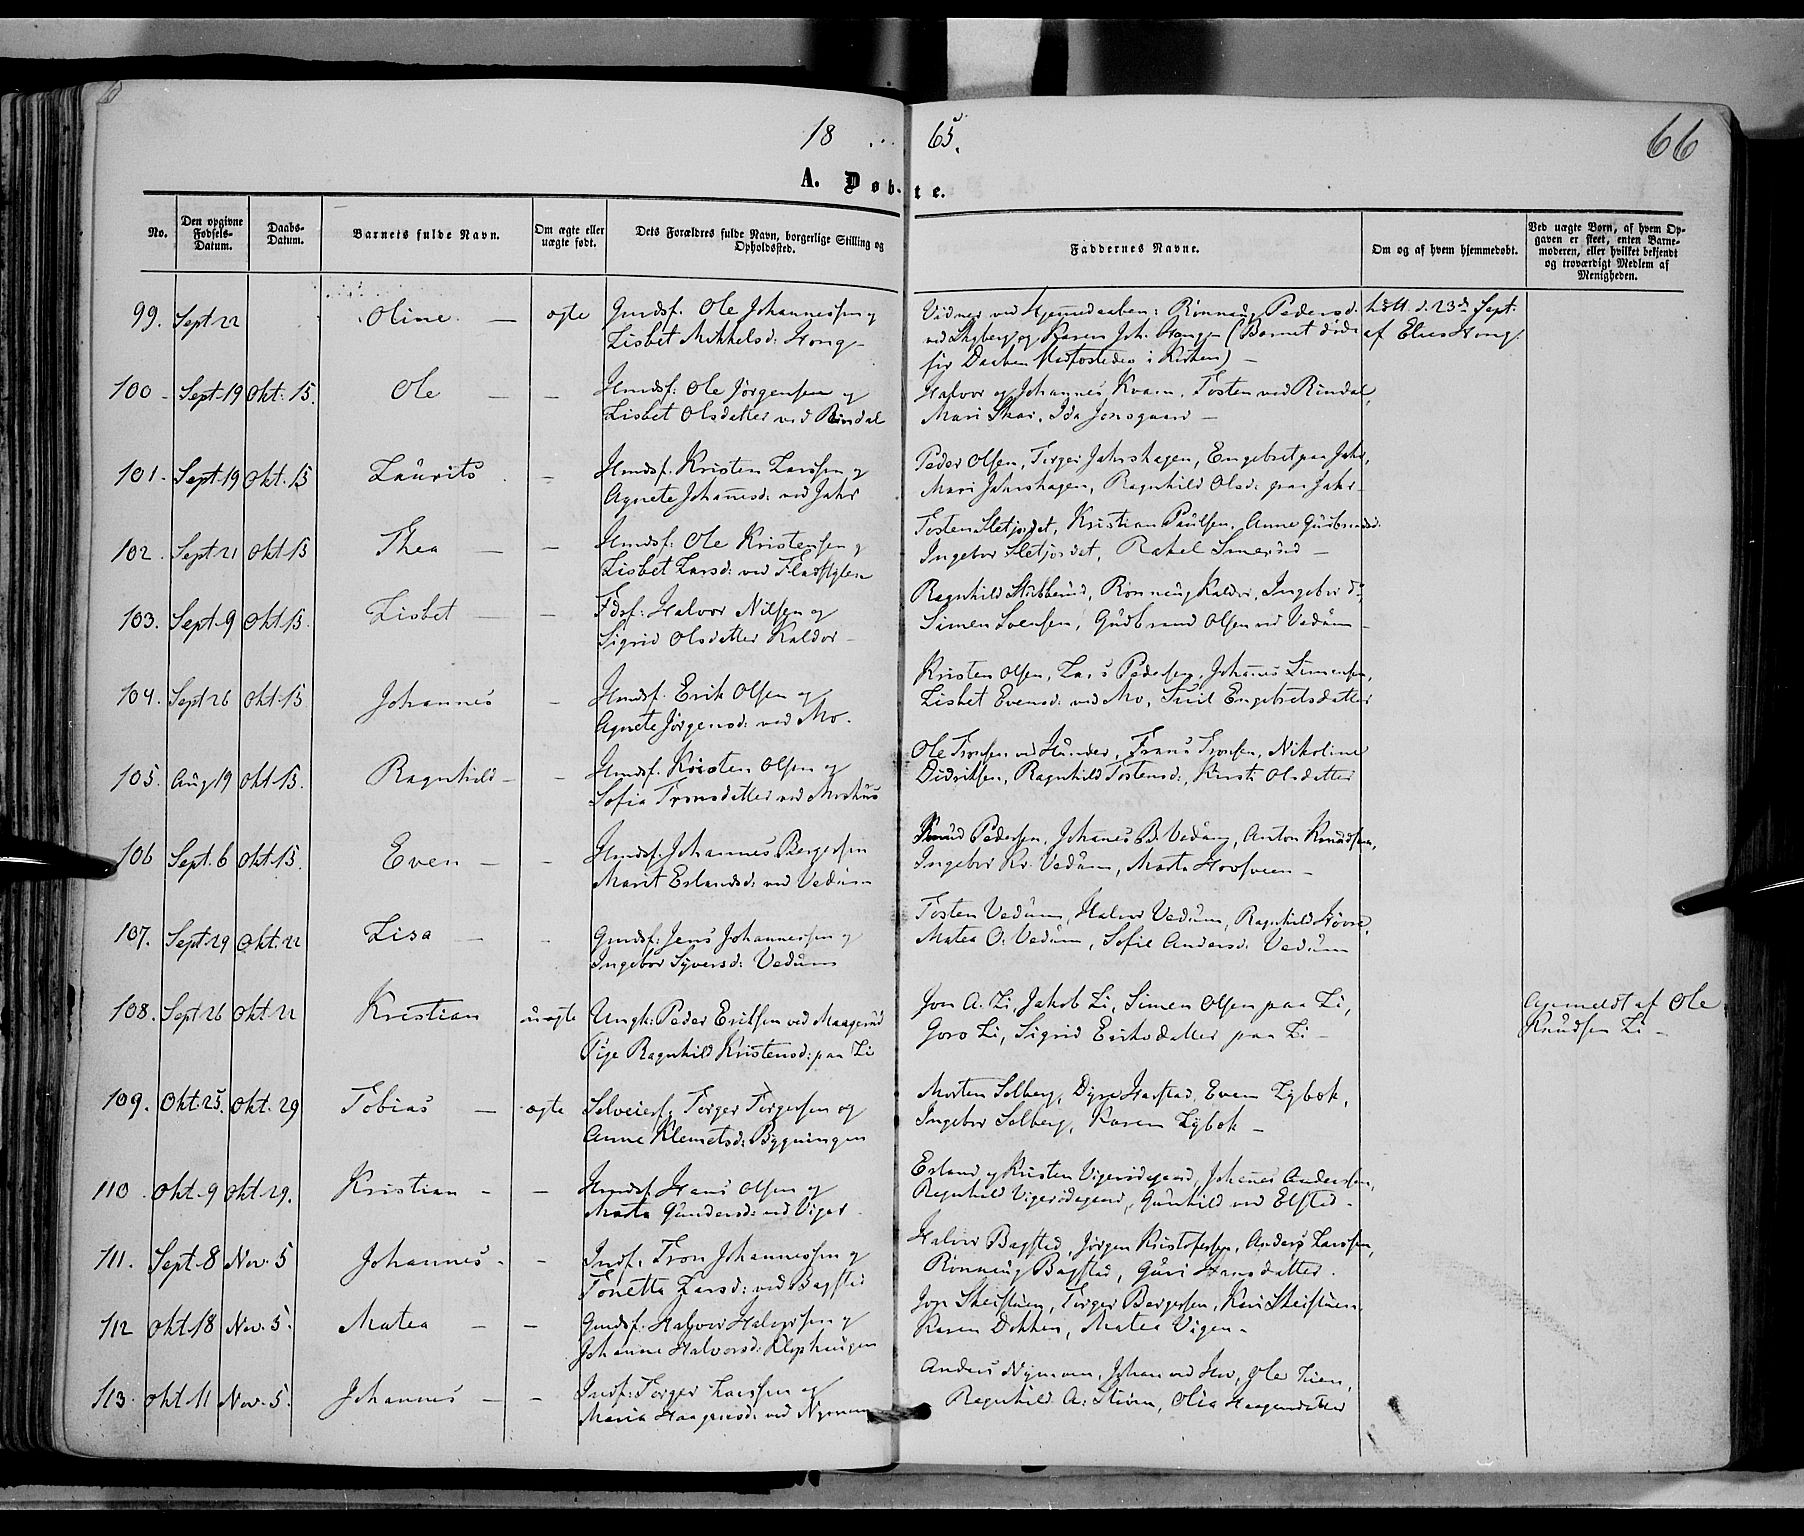 18 65.
66
A. Døbte.
No.
Den opgivne Fødsels-Datum.
Daabs-Datum.
Barnets fulde Navn.
Om ægte eller uægte født.
Dets Forældres fulde Navn, borgerlige Stilling og Opholdssted.
Faddernes Navne.
Om og af hvem hjemmedøbt.
Ved uægte Børn, af hvem Opgaven er skeet, enten Barnemoderen, eller hvilket bekjendt og troværdigt Medlem af Menigheden.
99. Sept 22 Oline. — ægte Gmdsf. Ole Johannessen og
Lisbet Mikkelsd: Hong —
Vidner ved Hjemmedaaben: Rønnaug Pedersd.
ved Skyberg og Karen Joh. Hong — (Barnet døde
før Daaben stadfæstedes i Kirken) —
hdøbt d. 23de Sept.
af Elies Hong.
100 Sept. 19 Okt. 15. Ole — — Hmdsf: Ole Jørgensen og
Lisbet Olsdatter ved Rindal
Halvor og Johannes Kvam, Tosten ved Rindal,
Mari Skar, Ida Jonsgaard —
101. Sept. 19 Okt. 15 Laurits — Hmdsf. Kristen Larssen og
Agnete Johannesd: ved Jahr
Peder Olsen, Torger Jahrshagen, Engebret paa Jahr,
Mari Jahrshagen, Ragnhild Olsd: paa Jahr —
102. Sept. 21 Okt 15 Thea — — Hmdsf: Ole Kristensen og
Lisbet Larsd: ved
Tosten Sletjordet, Kristian Paulsen, Anne Gudbrandsd:
Ingebor Sletjordet, Rakel —
103. Sept. 9 Okt. 15. Lisbet — — Fdsf: Halvor Nilsen og
Sigrid Olsdatter Kaldor —
Ragnhild Stubberud, Rønnaug Kaldor, Ingebor d:,
Simen Svensen, Gudbrand Olsen ved Vedum —
104. Sept 26 Okt. 15 Johannes — Hmdsf. Erik Olsen og
Agnete Jørgensd: ved Mo.
Kristen Olsen, Lars Pedersen, Johannes Simensen,
Lisbet Evensd: ved Mo, Engebretsdatter
105. Aug 19 Okt. 15. Ragnhild — — Hmdsf. Kristen Olsen og
Sofia Tronsdatter ved Moshus
Ole Tronsen ved Hunder, Frans Tronsen, Nikoline
Didriksen, Ragnhild Tostensd:, Kirsti Olsdatter
106 Sept. 6 Okt. 15. Even — — Hmdsf: Johannes Bergersen
Marit Erlandsd: ved Vedum
Knud Pedersen, Johannes B. Vedum, Anton Knudsen,
Ingebor Kr. Vedum, Marta —
107. Sept 29 Okt. 22 Lisa — — Gmdsf: Jens Johannessen og
Ingebor Syversd: Vedum
Tosten Vedum, Halvor Vedum, Ragnhild
Matea O: Vedum, Sofie Andersd: Vedum
108. Sept 26 Okt 22 Kristian uægte Ungk: Peder Eriksen ved Maagerud
Pige Ragnhild Kristensd: paa Li
Jon A. Li, Jakob Li, Simen Olsen paa Li,
Goro Li, Sigrid Eriksdatter paa Li —
Anmeldt af Ole
Knudsen Li —
109. Okt. 25. Okt. 29 Tobias — ægte Selveierf: Torger Torgersen og
Anne Klemetsd: Bygningen
Morten Solberg, Dyre Harstad, Even Lybek,
Ingebor Solberg, Karen Lybek —
110. Okt. 9 Okt. 29. Kristian — — Hmdsf. Hans Olsen og
Marta Gundersd: ved Viger.
Erland og Kristen Vigersødegaard, Johannes Andersen,
Ragnhild Vigersødegaard, Gunhild ved Elstad —
111. Sept. 8 Nov. 5 Johannes — — Indf. Tron Johannessen og
Tonetta Larsd: ved Bagstad
Halvor Bagstad, Jørgen Kristofersen, Anders Larssen,
Rønnaug Bagstad, Guri Hansdatter.
112 Okt 18 Nov. 5. Matea — — Gmdsf. Halvor Halvorsen og
Johanne Halvorsd: Klophaugen
Jon Skeistuen, Torger Bergersen, Kari Skeistuen
Karen Dokken, Matea Vigen —
113. Okt. 11 Nov. 5. Johannes — — Indf: Torger Larssen og
Maria Haagensd: ved Nymoen
Anders Nymoen, Johan ved, Ole Tuen,
Ragnhild A: Stuen, Olia Haagensdatter